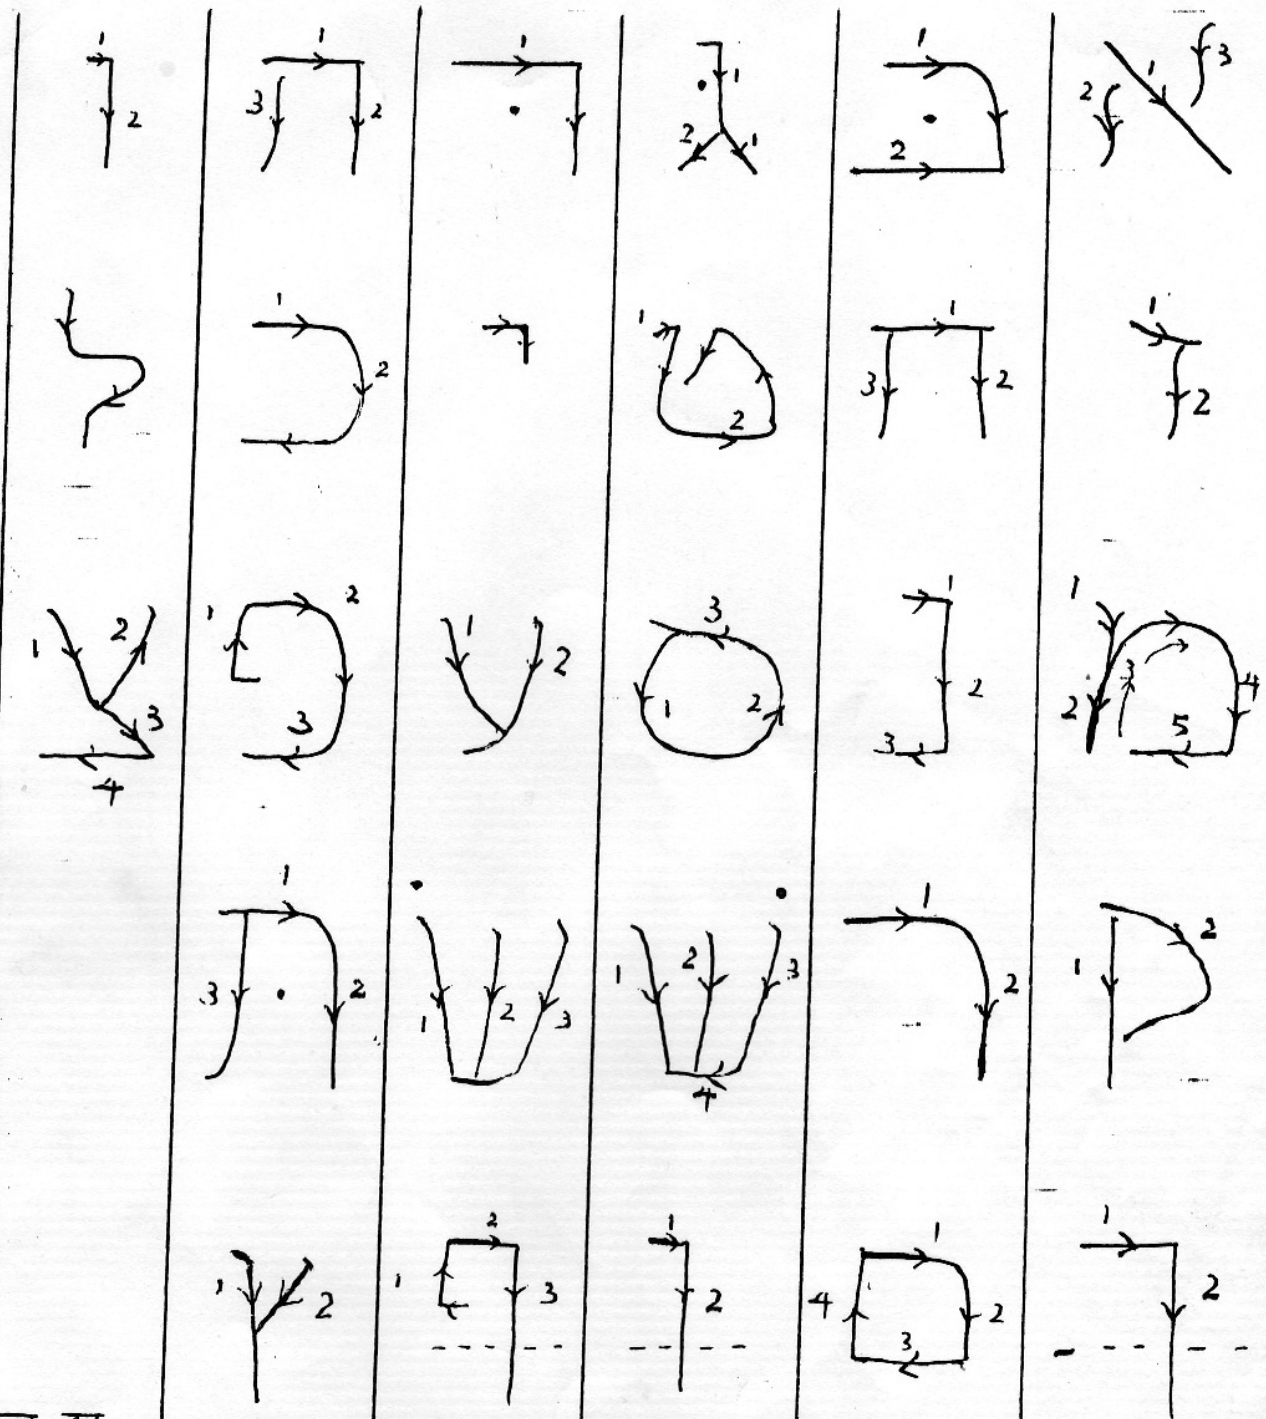 א בּ גּ דּ ה ו
ז ח ט י כ ל
מ נ ס ע פ צ
ק ר שׁ שׂ תּ
ך ם ן ף ץ